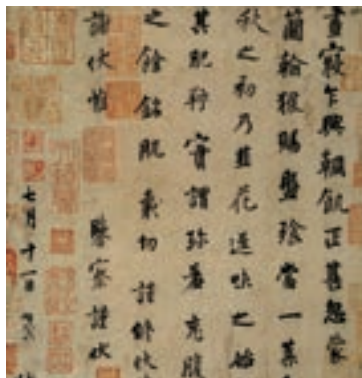 晝寢乍興輖飢正甚忽蒙
簡翰猥賜盤飧當一葉
秋之初乃韭花逞味之始
其肥羜實謂珍羞充腹
之餘銘肌載切謹修狀陳
謝伏惟
鑒察謹狀
七月十一日